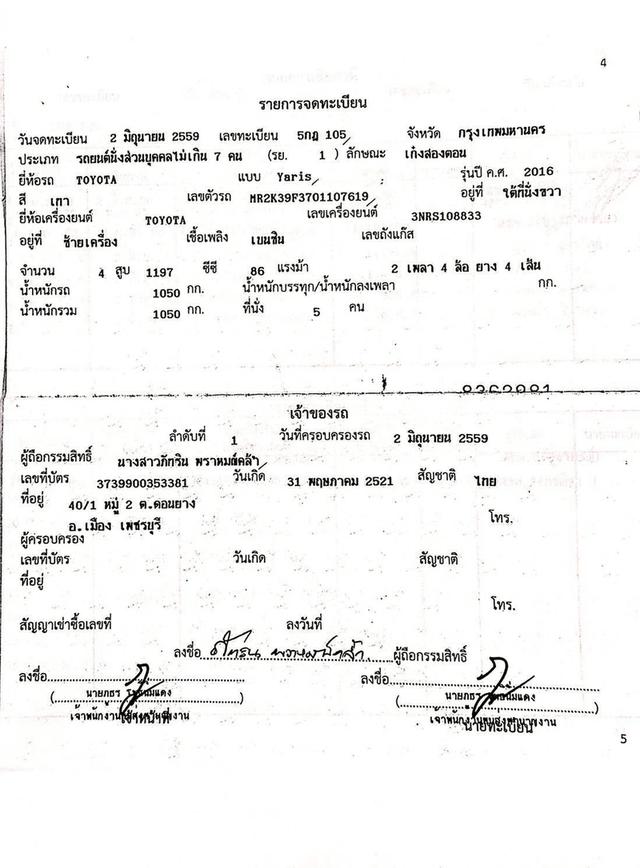 4
รายการจดทะเบียน
วันจดทะเบียน 2 มิถุนายน 2559 เลขทะเบียน 5กฎ 105 จังหวัด กรุงเทพมหานคร
ประเภท รถยนต์นั่งส่วนบุคคลไม่เกิน 7 คน (รย. 1 ) ลักษณะ เก๋งสองตอน
ยี่ห้อรถ TOYOTA แบบ Yaris รุ่นปี ค.ศ. 2016
สี เทา เลขตัวรถ MR2K39F3701107619 อยู่ที่ ใต้ที่นั่งขวา
ยี่ห้อเครื่องยนต์ TOYOTA เลขเครื่องยนต์ 3NRS108833
อยู่ที่ ซ้ายเครื่อง เชื้อเพลิง เบนซิน เลขถังแก๊ส
จำนวน 4 สูบ 1197 ซีซี 86 แรงม้า 2 เพลา 4 ล้อ ยาง 4 เส้น
น้ำหนักรถ 1050 กก. น้ำหนักบรรทุก/น้ำหนักลงเพลา กก.
น้ำหนักรวม 1050 กก. ที่นั่ง 5 คน
เจ้าของรถ
ลำดับที่ 1 วันที่ครอบครองรถ 2 มิถุนายน 2559
ผู้ถือกรรมสิทธิ์ นางสาวภัทริน พราหมณ์คล้ำ
เลขที่บัตร 3739900353381 วันเกิด 31 พฤษภาคม 2521 สัญชาติ ไทย
ที่อยู่ 40/1 หมู่ 2 ต.ดอนยาง
อ.เมือง เพชรบุรี
โทร.
ผู้ครอบครอง
เลขที่บัตร วันเกิด สัญชาติ
ที่อยู่
โทร.
สัญญาเช่าซื้อเลขที่ ลงวันที่
ลงชื่อ ภัทริน พราหมณ์คล้ำ ผู้ถือกรรมสิทธิ์
ลงชื่อ ลงชื่อ
(นายภธร) (นายภธร)
เจ้าหน้าที่ นายทะเบียน
5